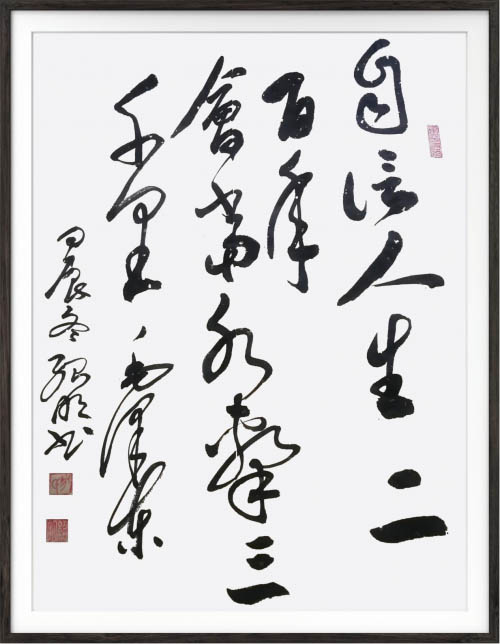 自信人生二
百年
會當水擊三
千里 毛澤東
甲辰冬 书